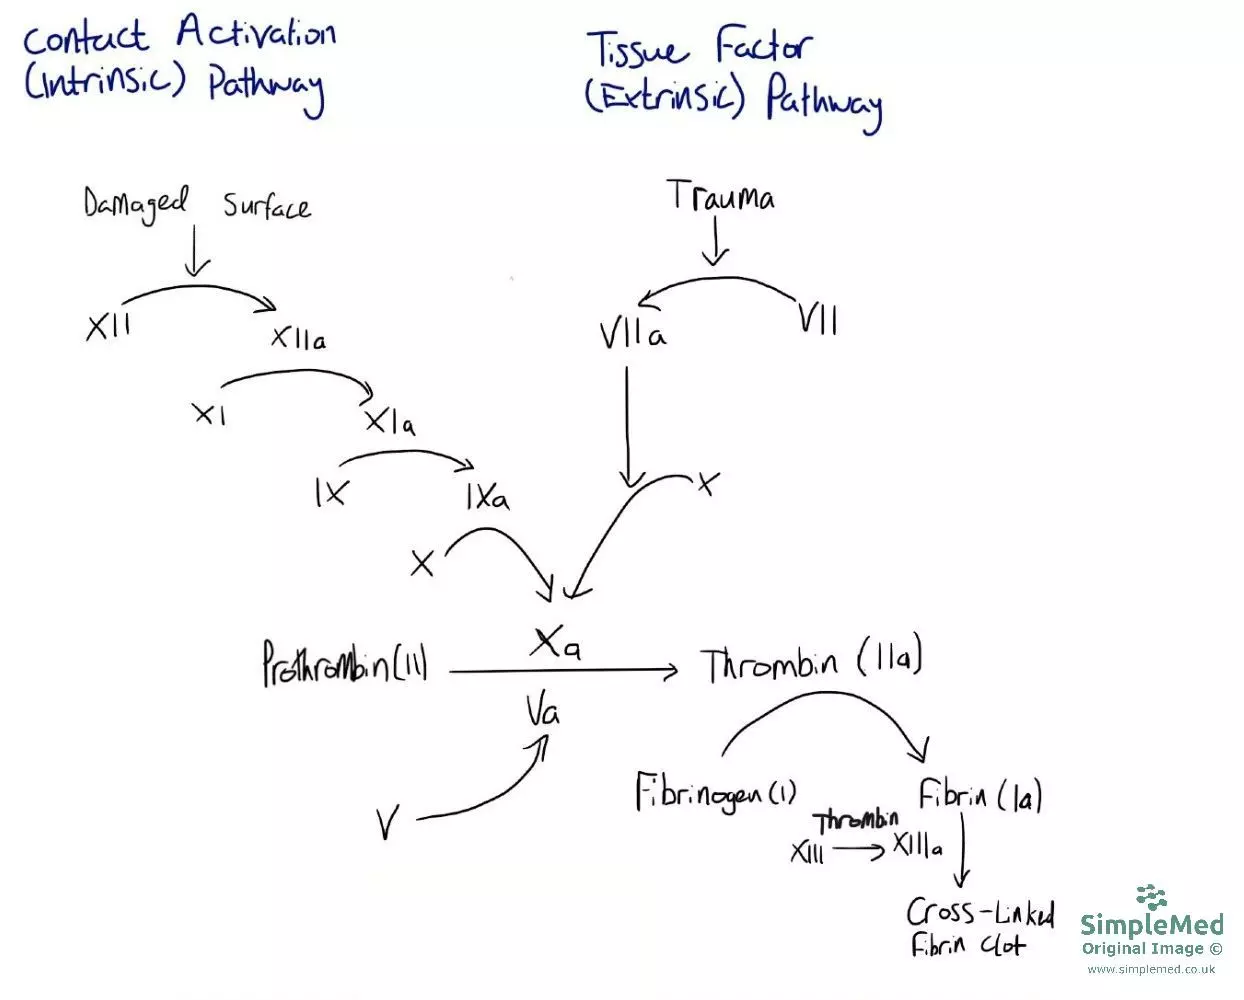 Contact Activation
(Intrinsic) Pathway
Tissue Factor
(Extrinsic) Pathway
Damaged Surface
Trauma
XII
XIIa
VIIa
VII
XI
XIa
IX
IXa
X
X
Xa
Prothrombin (II)
Thrombin (IIa)
Va
V
Fibrinogen (I)
Fibrin (Ia)
Thrombin
XIII
XIIIa
Cross-Linked
Fibrin Clot
SimpleMed
Original Image ©
www.simplemed.co.uk